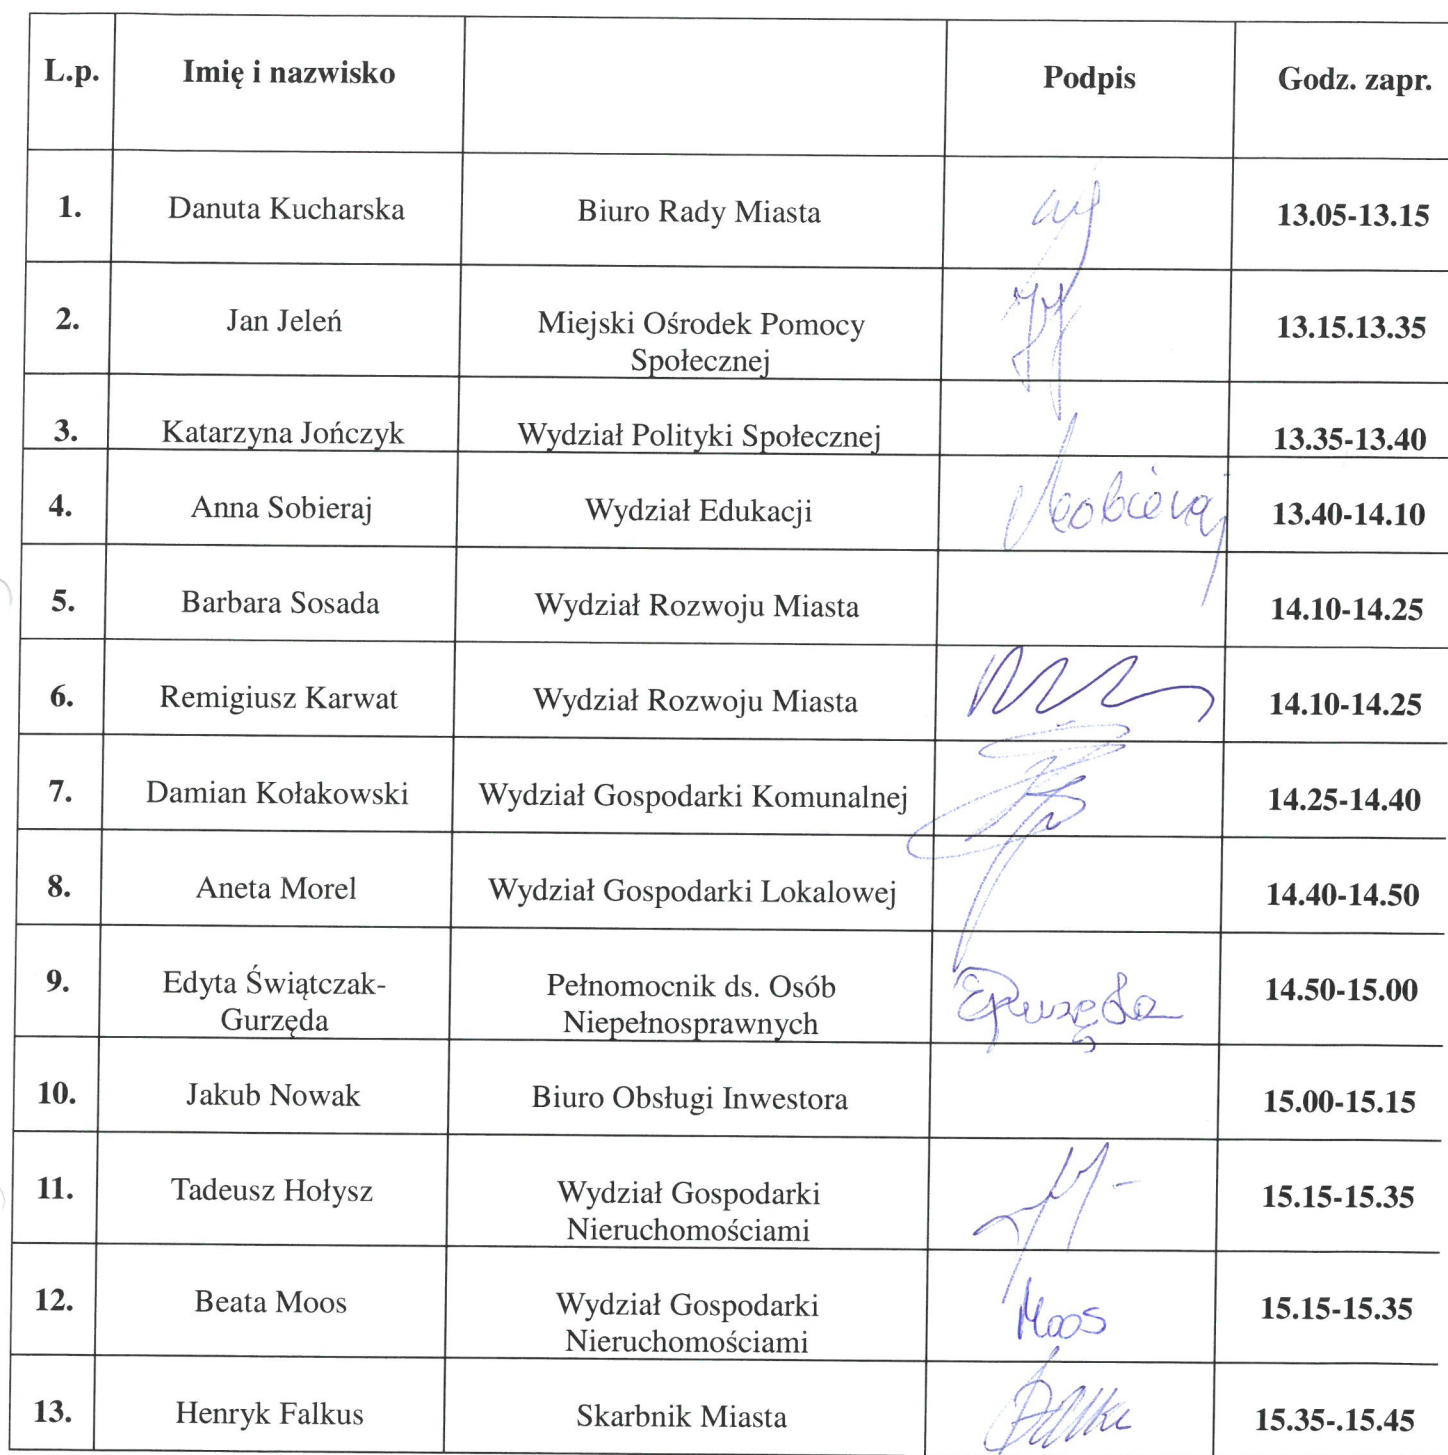 L.p. Imię i nazwisko Podpis Godz. zapr.
1. Danuta Kucharska Biuro Rady Miasta 13.05-13.15
2. Jan Jeleń Miejski Ośrodek Pomocy 13.15.13.35
Społecznej
3. Katarzyna Jończyk Wydział Polityki Społecznej 13.35-13.40
4. Anna Sobieraj Wydział Edukacji Sobieraj 13.40-14.10
5. Barbara Sosada Wydział Rozwoju Miasta 14.10-14.25
6. Remigiusz Karwat Wydział Rozwoju Miasta 14.10-14.25
7. Damian Kołakowski Wydział Gospodarki Komunalnej 14.25-14.40
8. Aneta Morel Wydział Gospodarki Lokalowej 14.40-14.50
9. Edyta Świątczak- Pełnomocnik ds. Osób 14.50-15.00
Gurzęda Niepełnosprawnych
10. Jakub Nowak Biuro Obsługi Inwestora 15.00-15.15
11. Tadeusz Hołysz Wydział Gospodarki 15.15-15.35
Nieruchomościami
12. Beata Moos Wydział Gospodarki Moos 15.15-15.35
Nieruchomościami
13. Henryk Falkus Skarbnik Miasta 15.35-.15.45